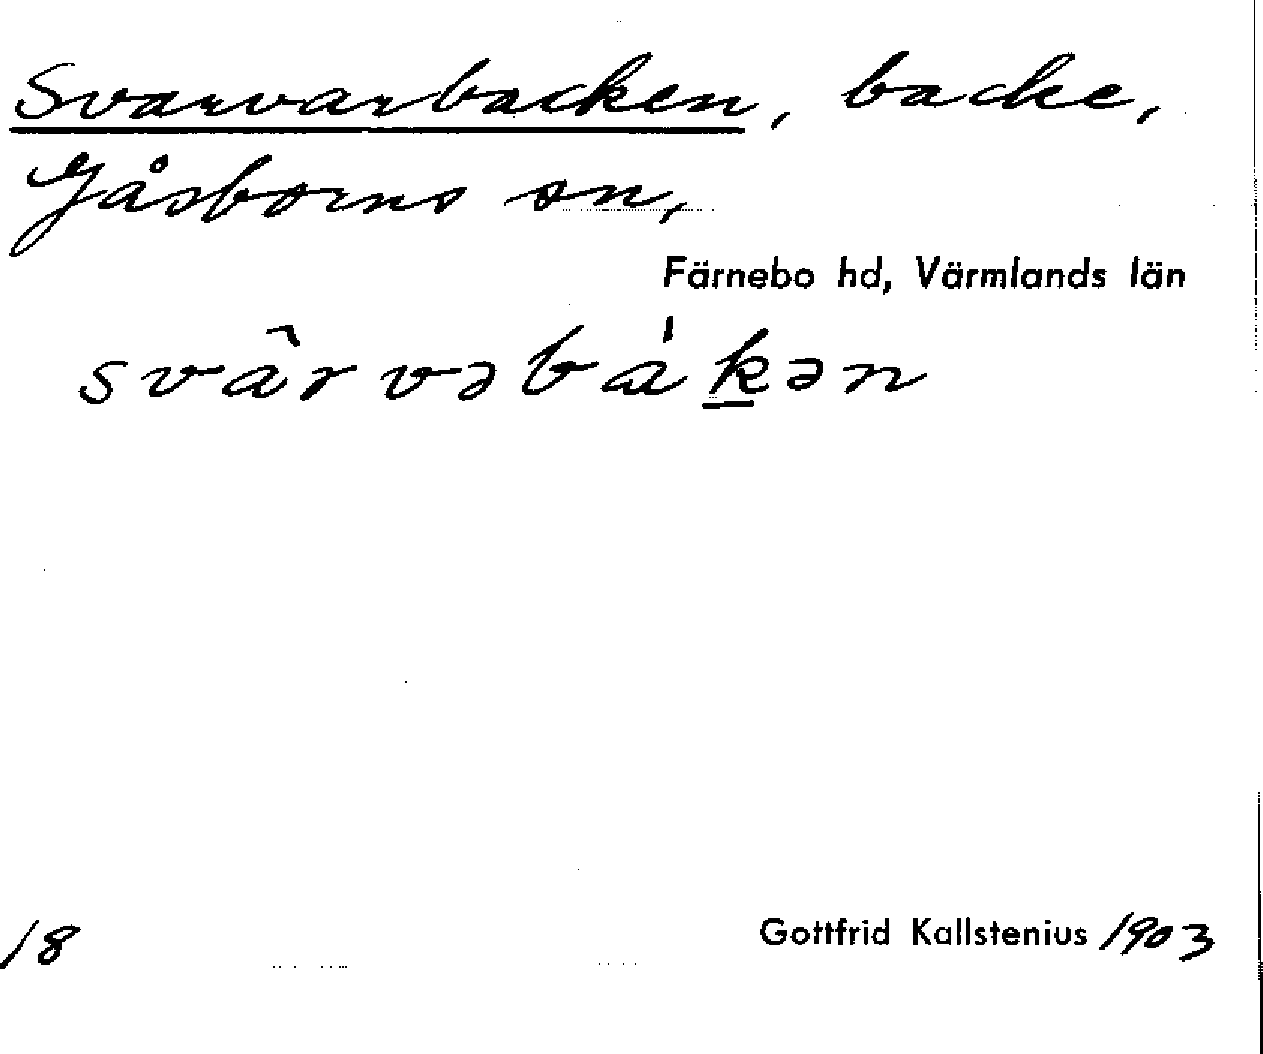 Svarvarbacken, backe,
Gåsborns sn,
Färnebo hd, Värmlands län
svârvəbák̲ən
18
Gottfrid Kallstenius 1903